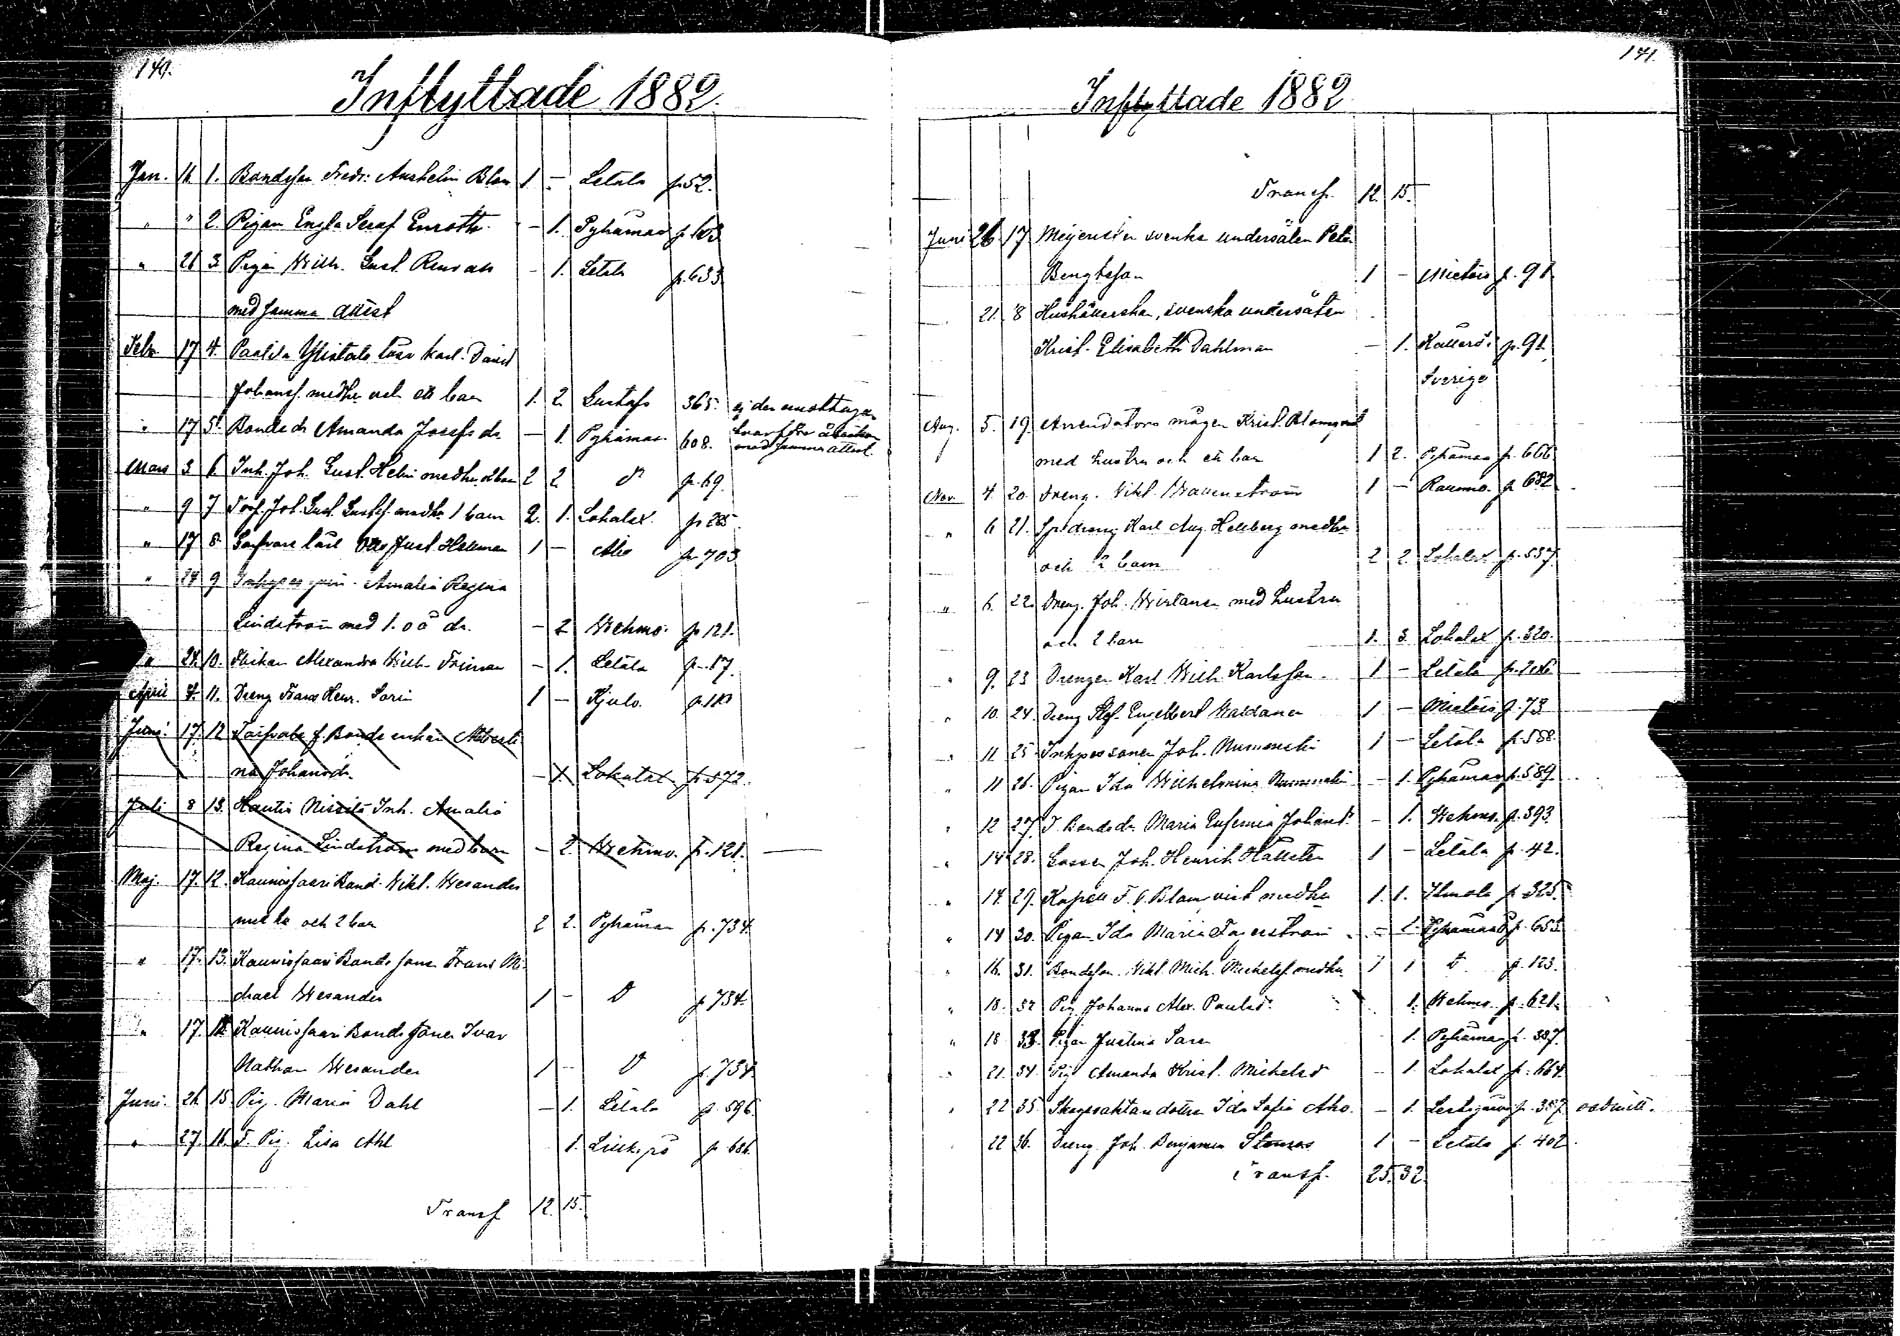 140.
Inflyttade 1882.
Jan. 16 1. Bondeson Fredr. Anshelm Blom 1 - Letala p. 52.
" " 2. Pigan Engla Seraf Enroth - 1. Pyhämaa p. 103
" 21 3 Pigan Wilh. Gust. - 1. Letala p. 633
med samma attest
Febr. 17 4. Paalila Ylistalo lösa karl. David
Johansf. med hu och ett barn 1. 2 Gustafs 365.
" 17 5. Bonded. Amanda Josefs dr - 1. Pyhämaa 608.
med samma attest
Mars 3 6 Inh. Joh. Gust. Helin med hu o barn 2 2 d:o p. 69.
" 9 7 Torp. Joh. Gust. Gustafs. med hu 1 barn 2. 1. Lokalax p. 285
" 17 8 Garfvare lärl Otto Just. Hellman 1 - Åbo p. 703
" 24 9 Inhyses pin. Amalia Regina
Lindström med 1. o ä dr. - 2 Wehmo. p. 121.
" 24. 10. Flickan Alexandra Wilh. Friman - 1. Letala p. 17.
April 4. 11. Dreng Frans Henr. Sarin 1 - Kjulo.
Juni 17. 12 f. Bonde enkan Alberti
na Johansdr. - 1 Lokalax p. 572.
Juli 8 13. Hautis Inh. Amalia
Regina Lindström med barn - 2 Wehmo. p. 121.
Maj. 17. 12. Kaunissaari Bond. Vikt. Wesander
med hu och 2 barn 2 2. Pyhämaa p. 734.
" 17. 13. Kaunissaari Bonde sonen Frans Mi-
chael Wesander 1 - D p. 734.
" 17. 14. Kaunissaari Bonde sonen Ivar
Nathan Wesander 1 - D p. 734
Juni. 26 15. Pig. Maria Dahl - 1. Letala p. 596.
" 27. 16. F. Pig. Lisa Ahl 1. p. 686.
Transf 12. 15.
141.
Inflyttade 1882
Transf. 12. 15.
Juni 26 17 Meijeristen svenska undersåten Petr.
Bengtsson 1 - Mietois p. 91
21. 8 Hushållerskan, svenska undersåten
Krist. Elisabeth Dahlman - 1. p. 91.
Sverige
Aug. 5. 19. Arrendators mågen Krist. Blomqvist
med hustru och ett barn 1 2. Pyhämaa p. 666
Nov. 4 20. Dreng. Vikt. 1 - Raumo. p. 682
" 6 21. Karl Aug. Hellberg med hu
och 2 barn 2 2 Lokalax p. 537.
" 6. 22. Dreng. Joh. Wirtanen med hustru
och 2 barn 1. 3. Lokalax p. 320.
" 9. 23 Drengen Karl Wilh. Karlsson. 1 - Letala
" 10. 24. Dreng Stef. Engelbert Waldanen 1 - Mietois p. 73
" 11 25 Inhyses sonen Joh. Nummelin 1 - Letala p. 558
" 11 26. Pigan Ida Wilhelmina Nummelin - 1. Pyhämaa p. 589.
" 12 27. F. Bondedr. Maria Eufemia Johansd. - 1. Wehmo. p. 393.
" 14 28. Gossen Joh. Henrik Hallsten 1 - Letala p. 42.
" 14. 29. Kapell. F. V. Blomqvist med hu 1. 1. Ilmola p. 325.
" 14 30. Pigan Ida Maria Fagerström - 1. Pyhämaa p. 653.
" 16. 31. Bondeson Vikt. Mich. Michelss. med hu 1 1 D p. 123.
" 18. 32 Pig. Johanna Alex. Paulsd. 1. Wehmo. p. 621.
" 18 33. Pigan Justina Saren 1. Pyhämaa p. 387.
" 21. 34. Pig. Amanda Krist. Michelsd - 1. Lokalax p. 664.
" 22 35. Skogsvaktaredottr. Ida Sofia Aho. - 1. p. 387
22 36. Dreng Joh. Benjamin 1 - Letala p. 402.
Transf. 25. 32.